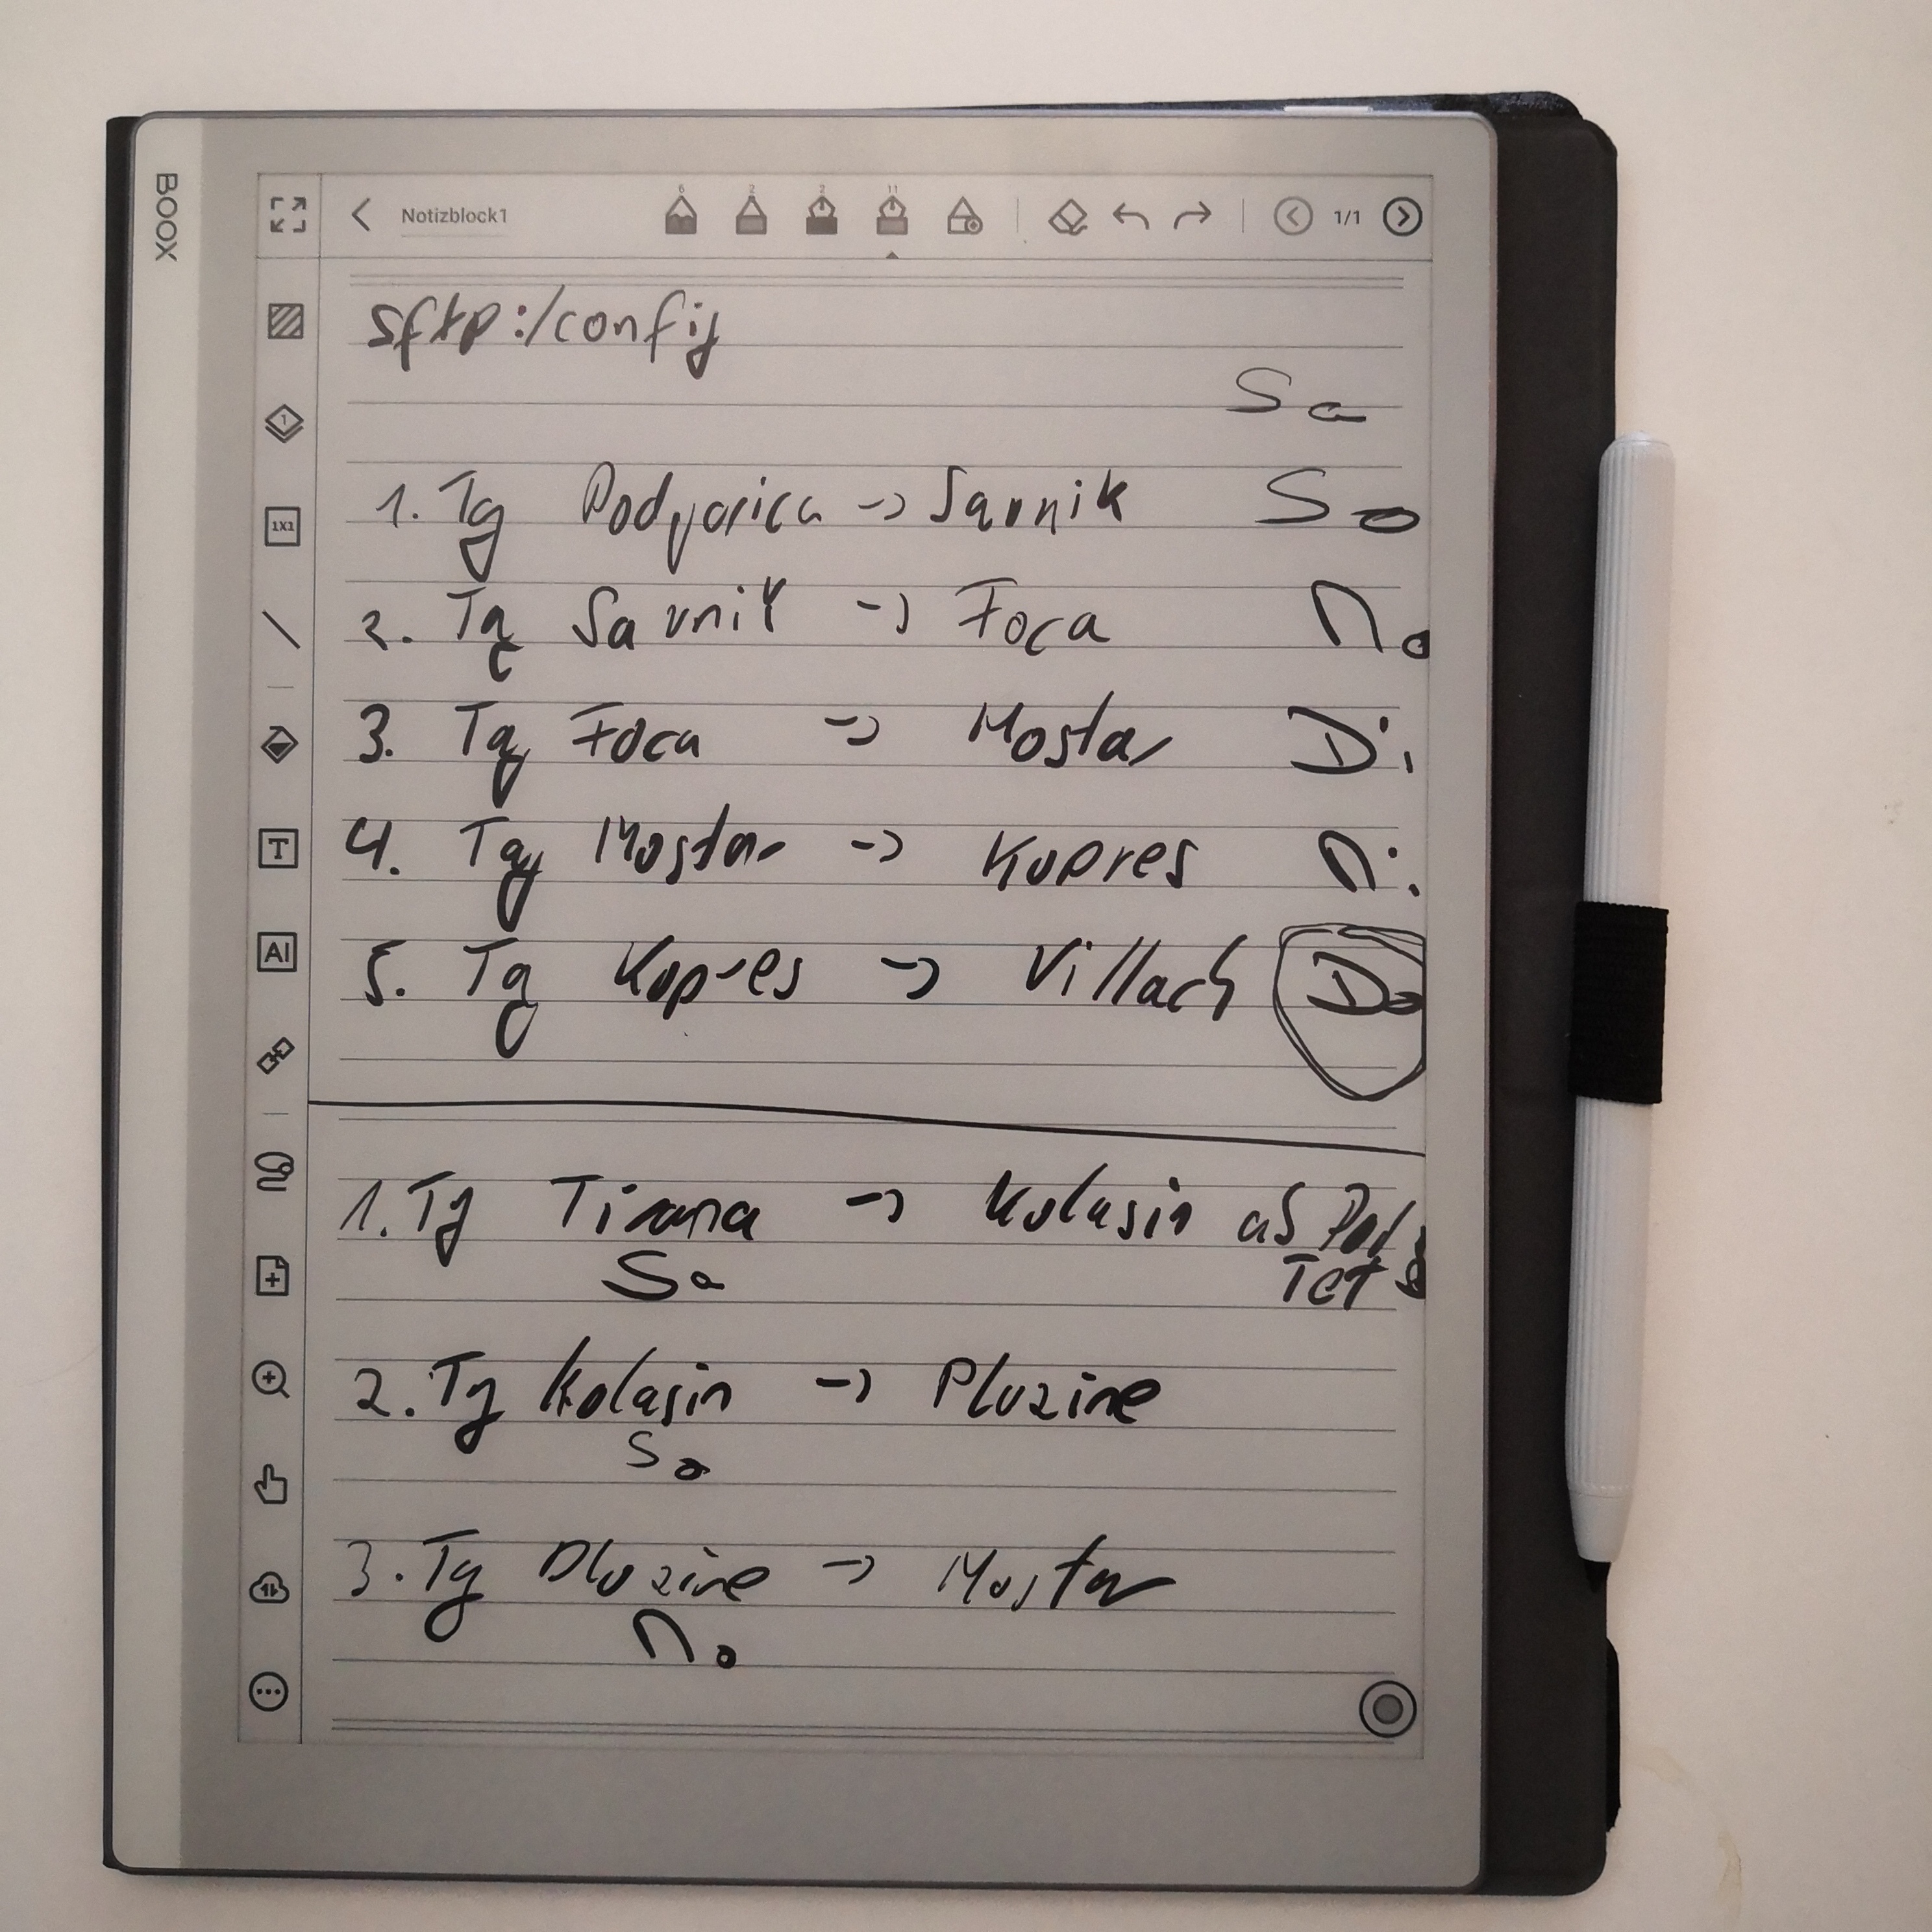 BOOX
Notizblock1
6 2 2 11
1/1
1
1X1
T
AI
sftp:/config
Sa
1. Tg Podgorica -> Savnik So
2. Tg Savnik -> Foca Mo
3. Tg Foca -> Mostar Di
4. Tg Mostar -> Kupres Mi
5. Tg Kupres -> Villach Do
1. Tg Tirana -> Kolasin
Sa
2. Tg Kolasin -> Pluzine
So
3. Tg Pluzine -> Mostar
Mo